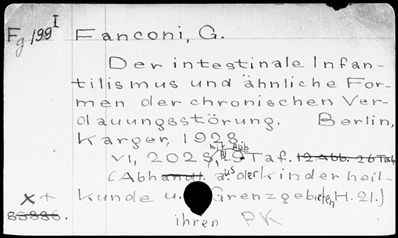 Fg 199 I
Fanconi, G.
Der intestinale Infan-
tilismus und ähnliche For-
men der chronischen Ver-
dauungsstörung. Berlin,
Karger, 1928.
VI, 202S, 9 Taf. 12 Abb. 26 Tab.
(Abhandl. aus der Kinderheil-
kunde u. Grenzgebieten H. 21.)
ihren PK
X+